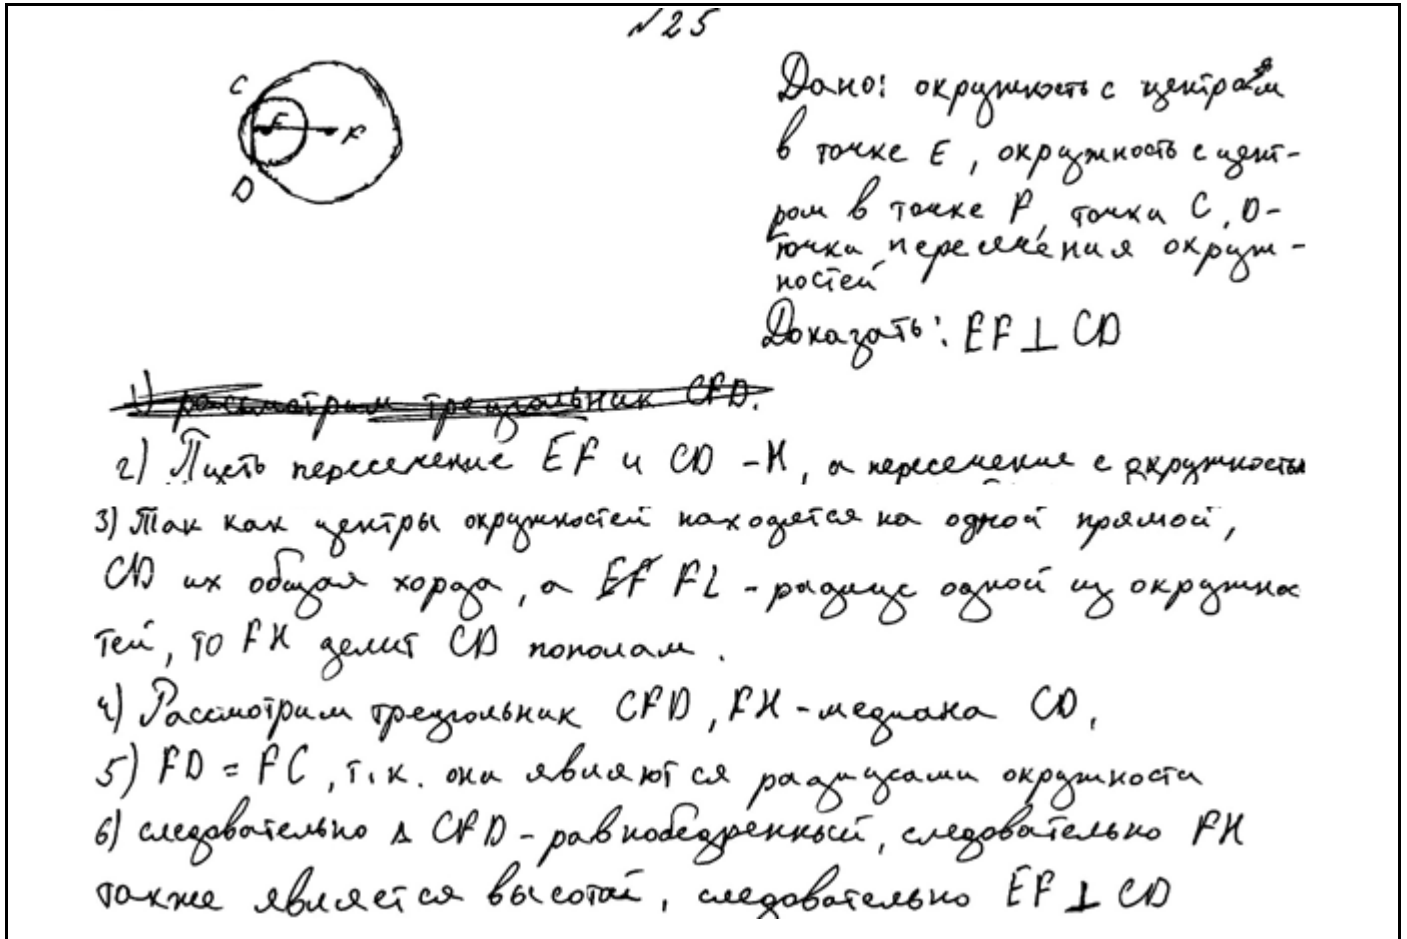 №25
C
E
F
D
Дано: окружность с центром
в точке E, окружность с цент-
ром в точке F, точки C, D-
точки пересечения окруж-
ностей
Доказать: EF ⊥ CD
1) рассмотрим треугольник CFD.
2) Пусть пересечение EF и CD - H, а пересечение с окружностью
3) Так как центры окружностей находятся на одной прямой,
CD их общая хорда, а EF FL - радиус одной из окружнос
тей, то FH делит CD пополам.
4) Рассмотрим треугольник CFD, FH - медиана CD,
5) FD = FC, т.к. они являются радиусами окружности
6) следовательно Δ CFD - равнобедренный, следовательно FH
также является высотой, следовательно EF ⊥ CD